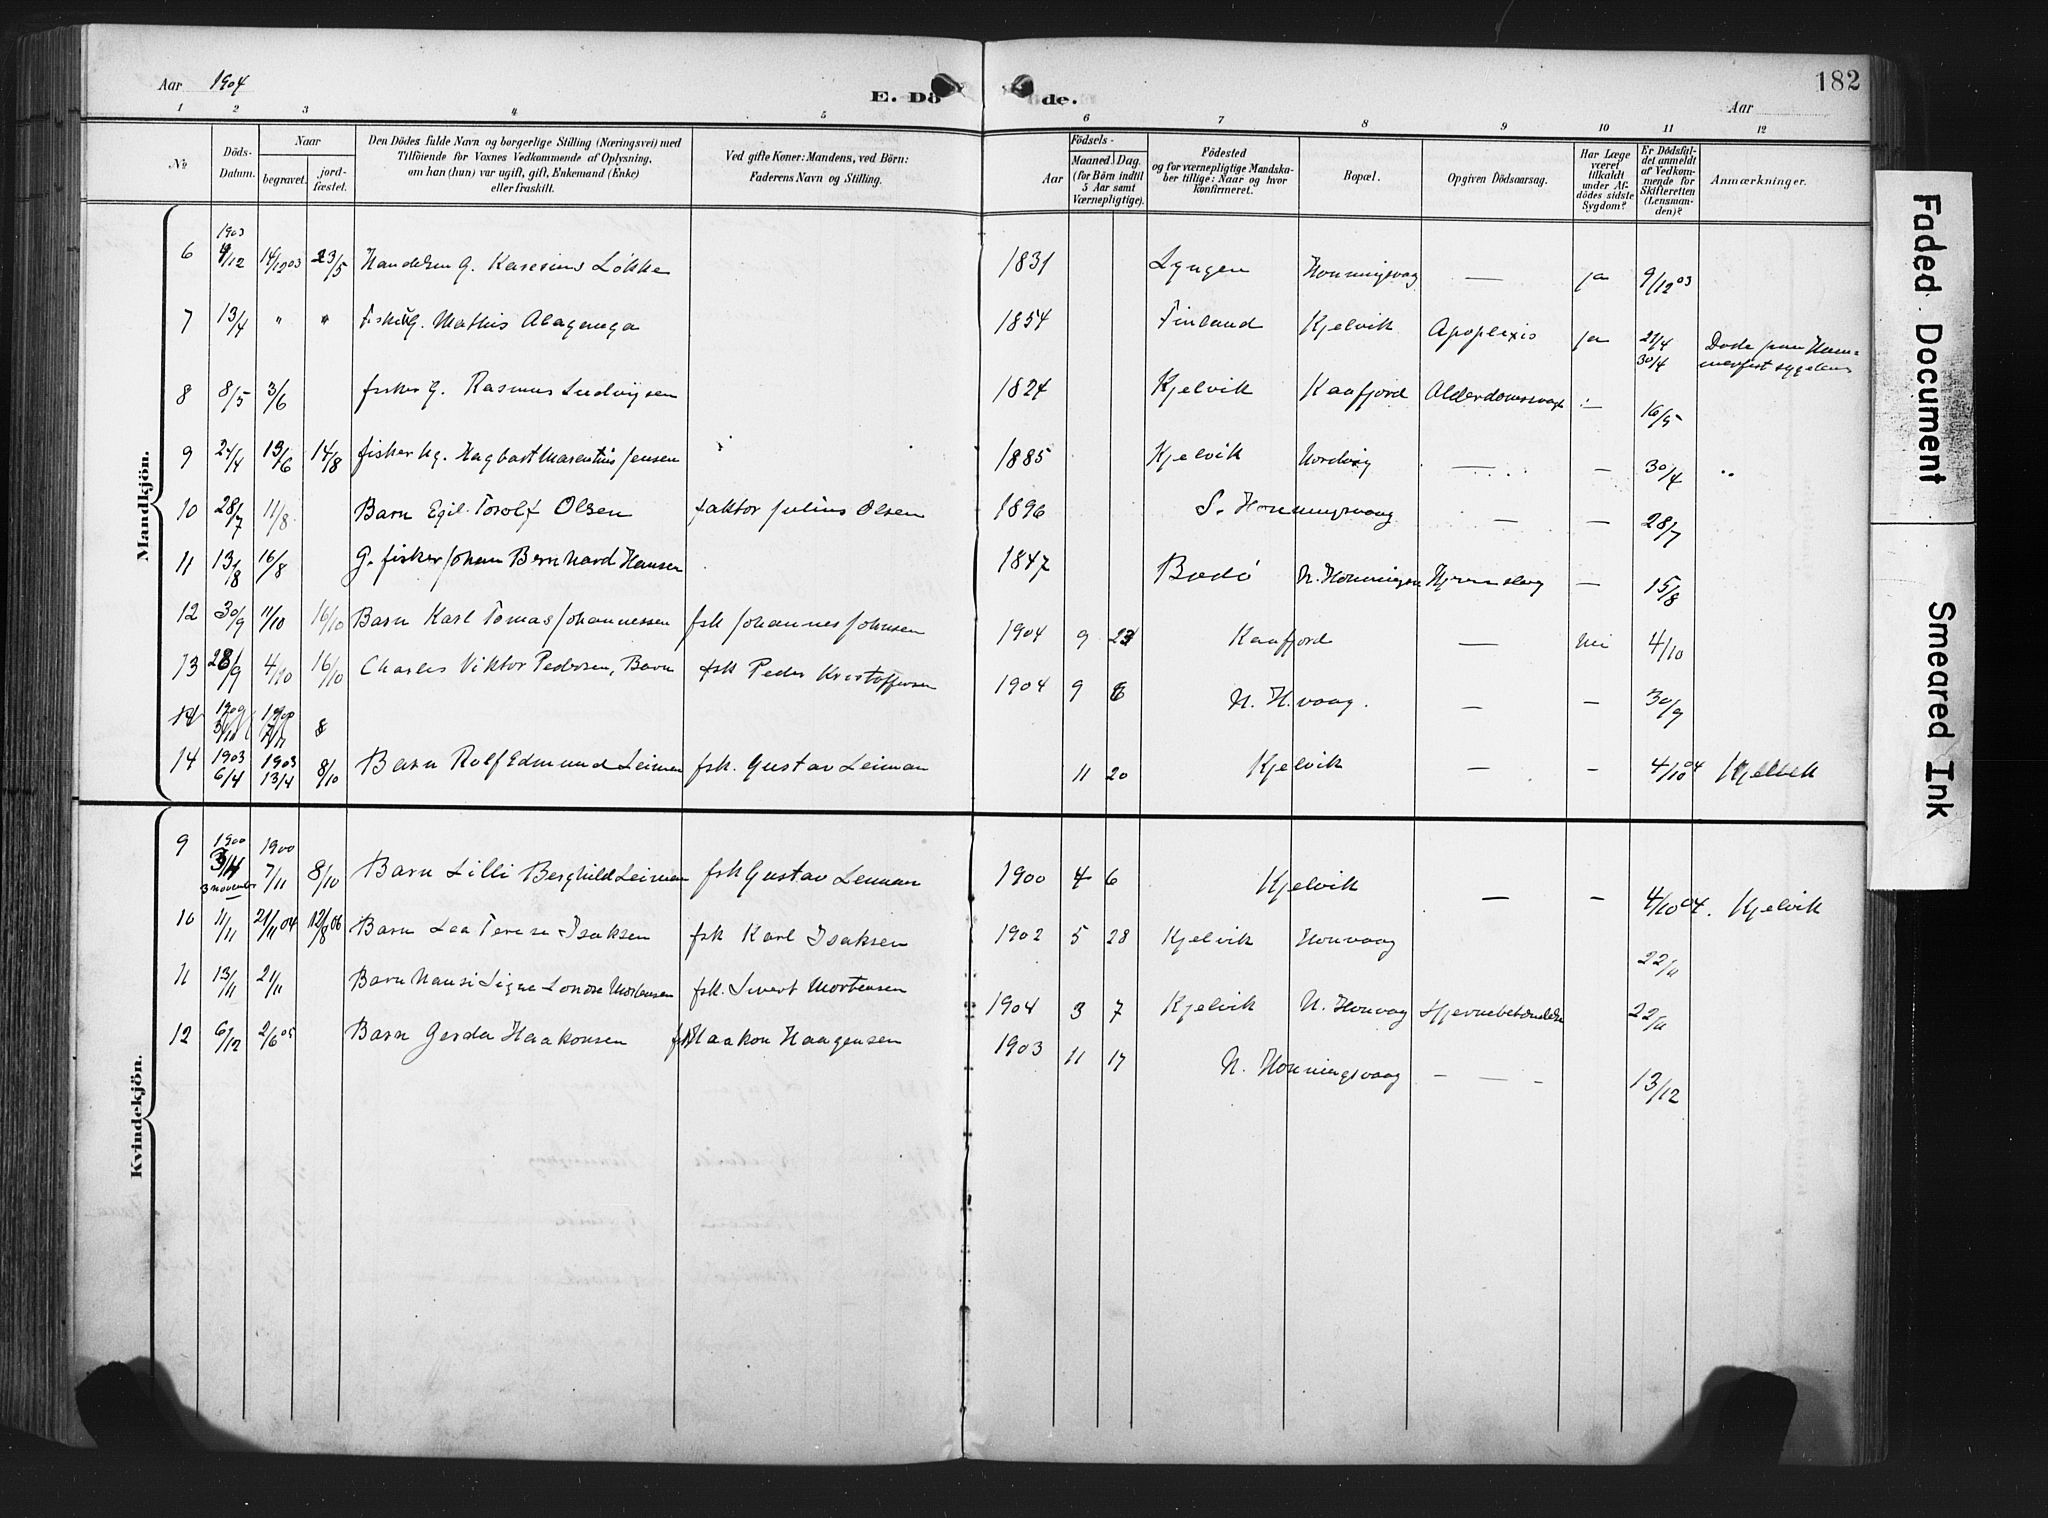 Aar 1904
E. Döde.
Aar
182
1 2 3 4 5 6 7 8 9 10 11 12
No
Döds-Datum.
Naar
begravet.
jord-fæstet.
Den Dödes fulde Navn og borgerlige Stilling (Næringsvei) med
Tilföiende for Voxnes Vedkommende af Oplysning,
om han (hun) var ugift, gift, Enkemand (Enke)
eller fraskilt.
Ved gifte Koner: Mandens, ved Börn:
Faderens Navn og Stilling.
Födsels-
Aar
Maaned. Dag.
(for Börn indtil
5 Aar samt
Værnepligtige).
Födested
og for værnepligtige Mandska-
ber tillige: Naar og hvor
konfirmeret.
Bopæl.
Opgiven Dödsaarsag.
Har Læge
været
tilkaldt
under Af-
dödes sidste
Sygdom?
Er Dödsfal-
det anmeldt
af Vedkom-
mende for
Skifteretten
(Lensman-
den)?
Anmærkninger.
Mandkjön.
6 1903 4/12 14/12 03 23/5 Handelsm G. Løkke 1831 Lyngen Honningsvaag — ja 9/12 03
7 13/4 " " Fisker G. Mathis 1854 Finland Kjelvik Apoplexis ja 21/4 30/4
8 8/5 3/6 fisker G. Rasmus Ludvigsen 1824 Kjelvik Kaafjord 16/5
9 24/4 13/6 14/8 fisker Ug. Hagbart Marentius Jensen 1885 Kjelvik Nordvåg — — 30/4 "
10 28/7 11/8 Barn Egil Torolf Olsen faktor Julius Olsen 1896 S. Honningsvaag — — 28/7
11 13/8 16/8 G. fisker Johan Bernhard Hansen 1847 Bodö N. Honningsv — 15/8
12 30/9 11/10 16/10 Barn Karl Tomas Johannessen fsk Johannes Johnsen 1904 9 23 Kaafjord — nei 4/10
13 28/9 4/10 16/10 Charles Viktor Pedersen, Barn fsk Peder Kristoffersen 1904 9 6 N. H.vaag. — — 30/9
14 8
14 1903 6/4 1903 13/4 8/10 Barn Rolf Edmund Leiman fsk. Gustav Leiman 11 20 Kjelvik — — 4/10 04 Kjelvik
Kvindekjön.
9 1900 3/11 3 november 1900 7/11 8/10 Barn Lilli Berghild Leiman fsk Gustav Leiman 1900 4 6 Kjelvik — — 4/10 04. Kjelvik
10 11/11 21/11 04 12/8 06 Barn Lea Terese Isaksen fsk Karl Isaksen 1902 5 28 Kjelvik Honvaag 22/11
11 13/11 21/11 Barn Hansi Signe Mortensen fsk. Sivert Mortensen 1904 3 7 Kjelvik N. Honvag Hjernebetændelse 22/11
12 6/12 2/6 05 Barn Gerda Haakonsen fsk Haakon Haagensen 1903 11 17 N. Honningsvaag — — - 13/12
Faded Document
Smeared Ink